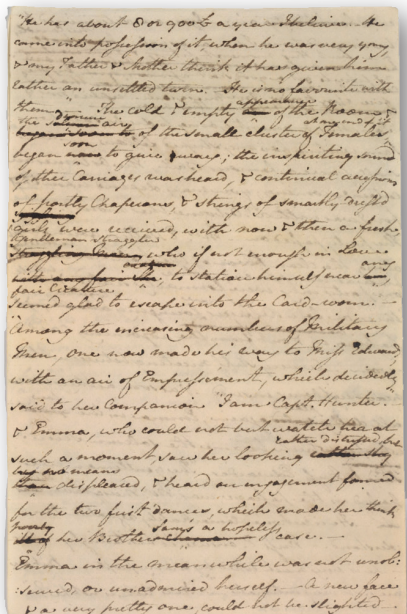 "He has about 8 or 900£ a year I believe. He
came into possession of it, when he was very young
& my Father & Mother think it has given him
rather an unsettled turn. He is no favourite with
them."— The cold & empty appearance of the Room &
the demure air of the small cluster of Females
at one end of it
began soon to give way; the inspiriting sound
of other Carriages was heard, & continual accessions
of portly Chaperons, & strings of smartly dressed
girls were received, with now & then a fresh
Gentleman straggler
who if not enough in Love
to station himself near any
fair Creature
seemed glad to escape into the Card-room.—
Among the increasing numbers of Military
Men, one now made his way to Miss Edwards,
with an air of Empressement, which decidedly
said to her companion "I am Capt. Hunter."
& Emma, who could not but watch her at
such a moment, saw her looking rather distressed, but
by no means
displeased, & heard an engagement formed
for the two first dances, which made her think
her Brother Sam's a hopeless case.—
Emma in the meanwhile was not unob:
:served, or unadmired herself.— A new face
& a very pretty one, could not be slighted—